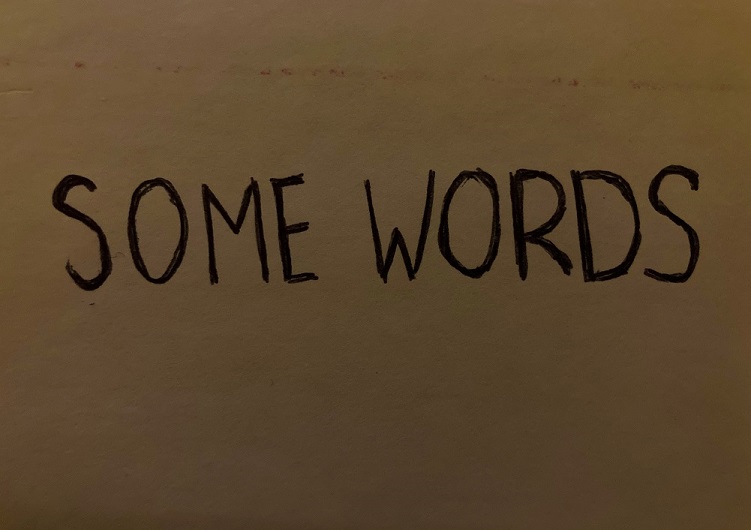 SOME WORDS